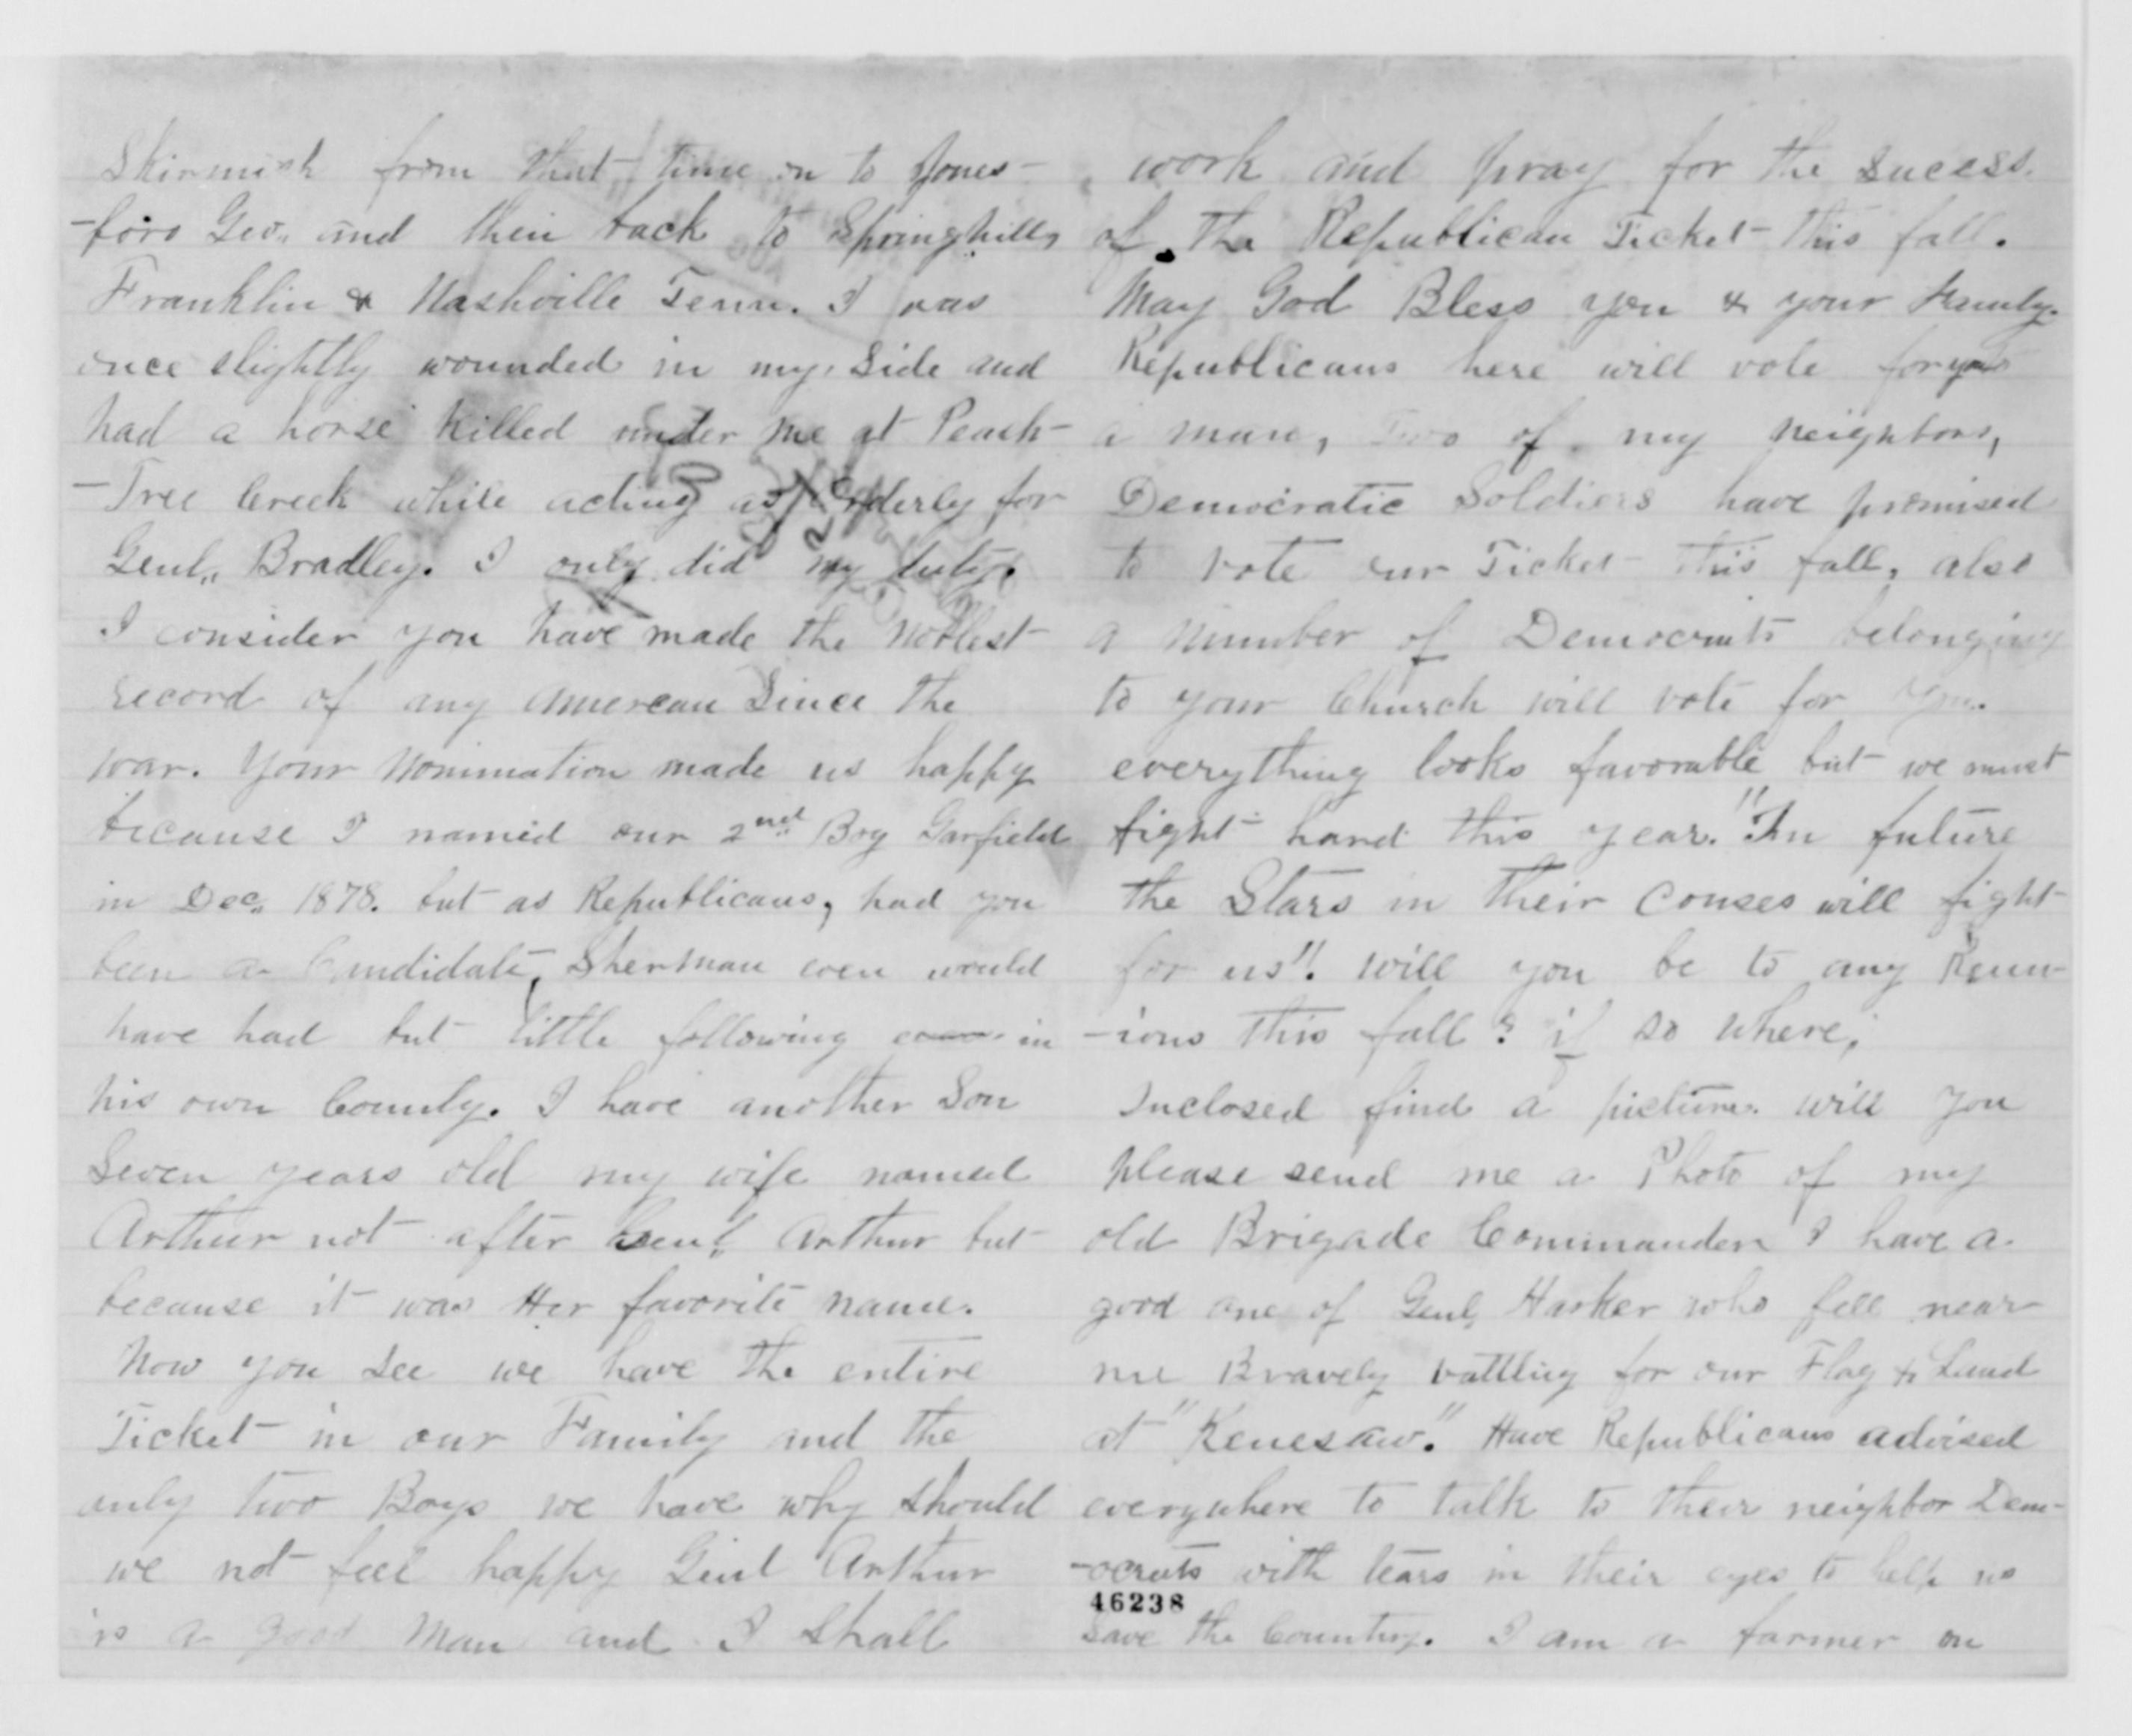 Skirmish from that time on to Jones-
-boro Geo,, and then back to Springhill,
Franklin & Nashville Tenn. I was
once slightly wounded in my side and
had a horse killed under me at Peach-
-Tree Creek while acting as orderly for
Genl,, Bradley. I only did my duty.
I consider you have made the noblest
record of any Amerean Since the
war. Your Nomination made us happy
because I named our 2nd Boy Garfield
in Dec,, 1878. but as Republicans, had you
been a Candidate, Sherman even would
have had but little following in
his own County. I have another Son
Seven years old my wife named
Arthur not after Genl, Arthur but
because it was Her favorite name.
Now you See we have the entire
Ticket in our Family and the
only two Boys we have why should
we not feel happy Genl Arthur
is a good Man and I shall
work and pray for the sucess.
of the Republican Ticket this fall.
May God Bless you & your Family.
Republicans here will vote for you
a man, Two of my neighbors,
Democratic Soldiers have promised
to vote our Ticket this fall, also
a number of Democrats belonging
to your Church will vote for you.
everything looks favorable but we must
fight hard this year. "In future
the Stars in their Couses will fight
for us". Will you be to any Reun-
-ions this fall? if so where,
Inclosed find a picture. will you
please send me a Photo of my
old Brigade Commander I have a
good one of Genl, Harker who fell near
me Bravely battling for our Flag & Land
at "Kenesaw." Have Republicans advised
everywhere to talk to their neighbor Dem-
-ocrats with tears in their eyes to help us
46238
Save the Country. I am a farmer on